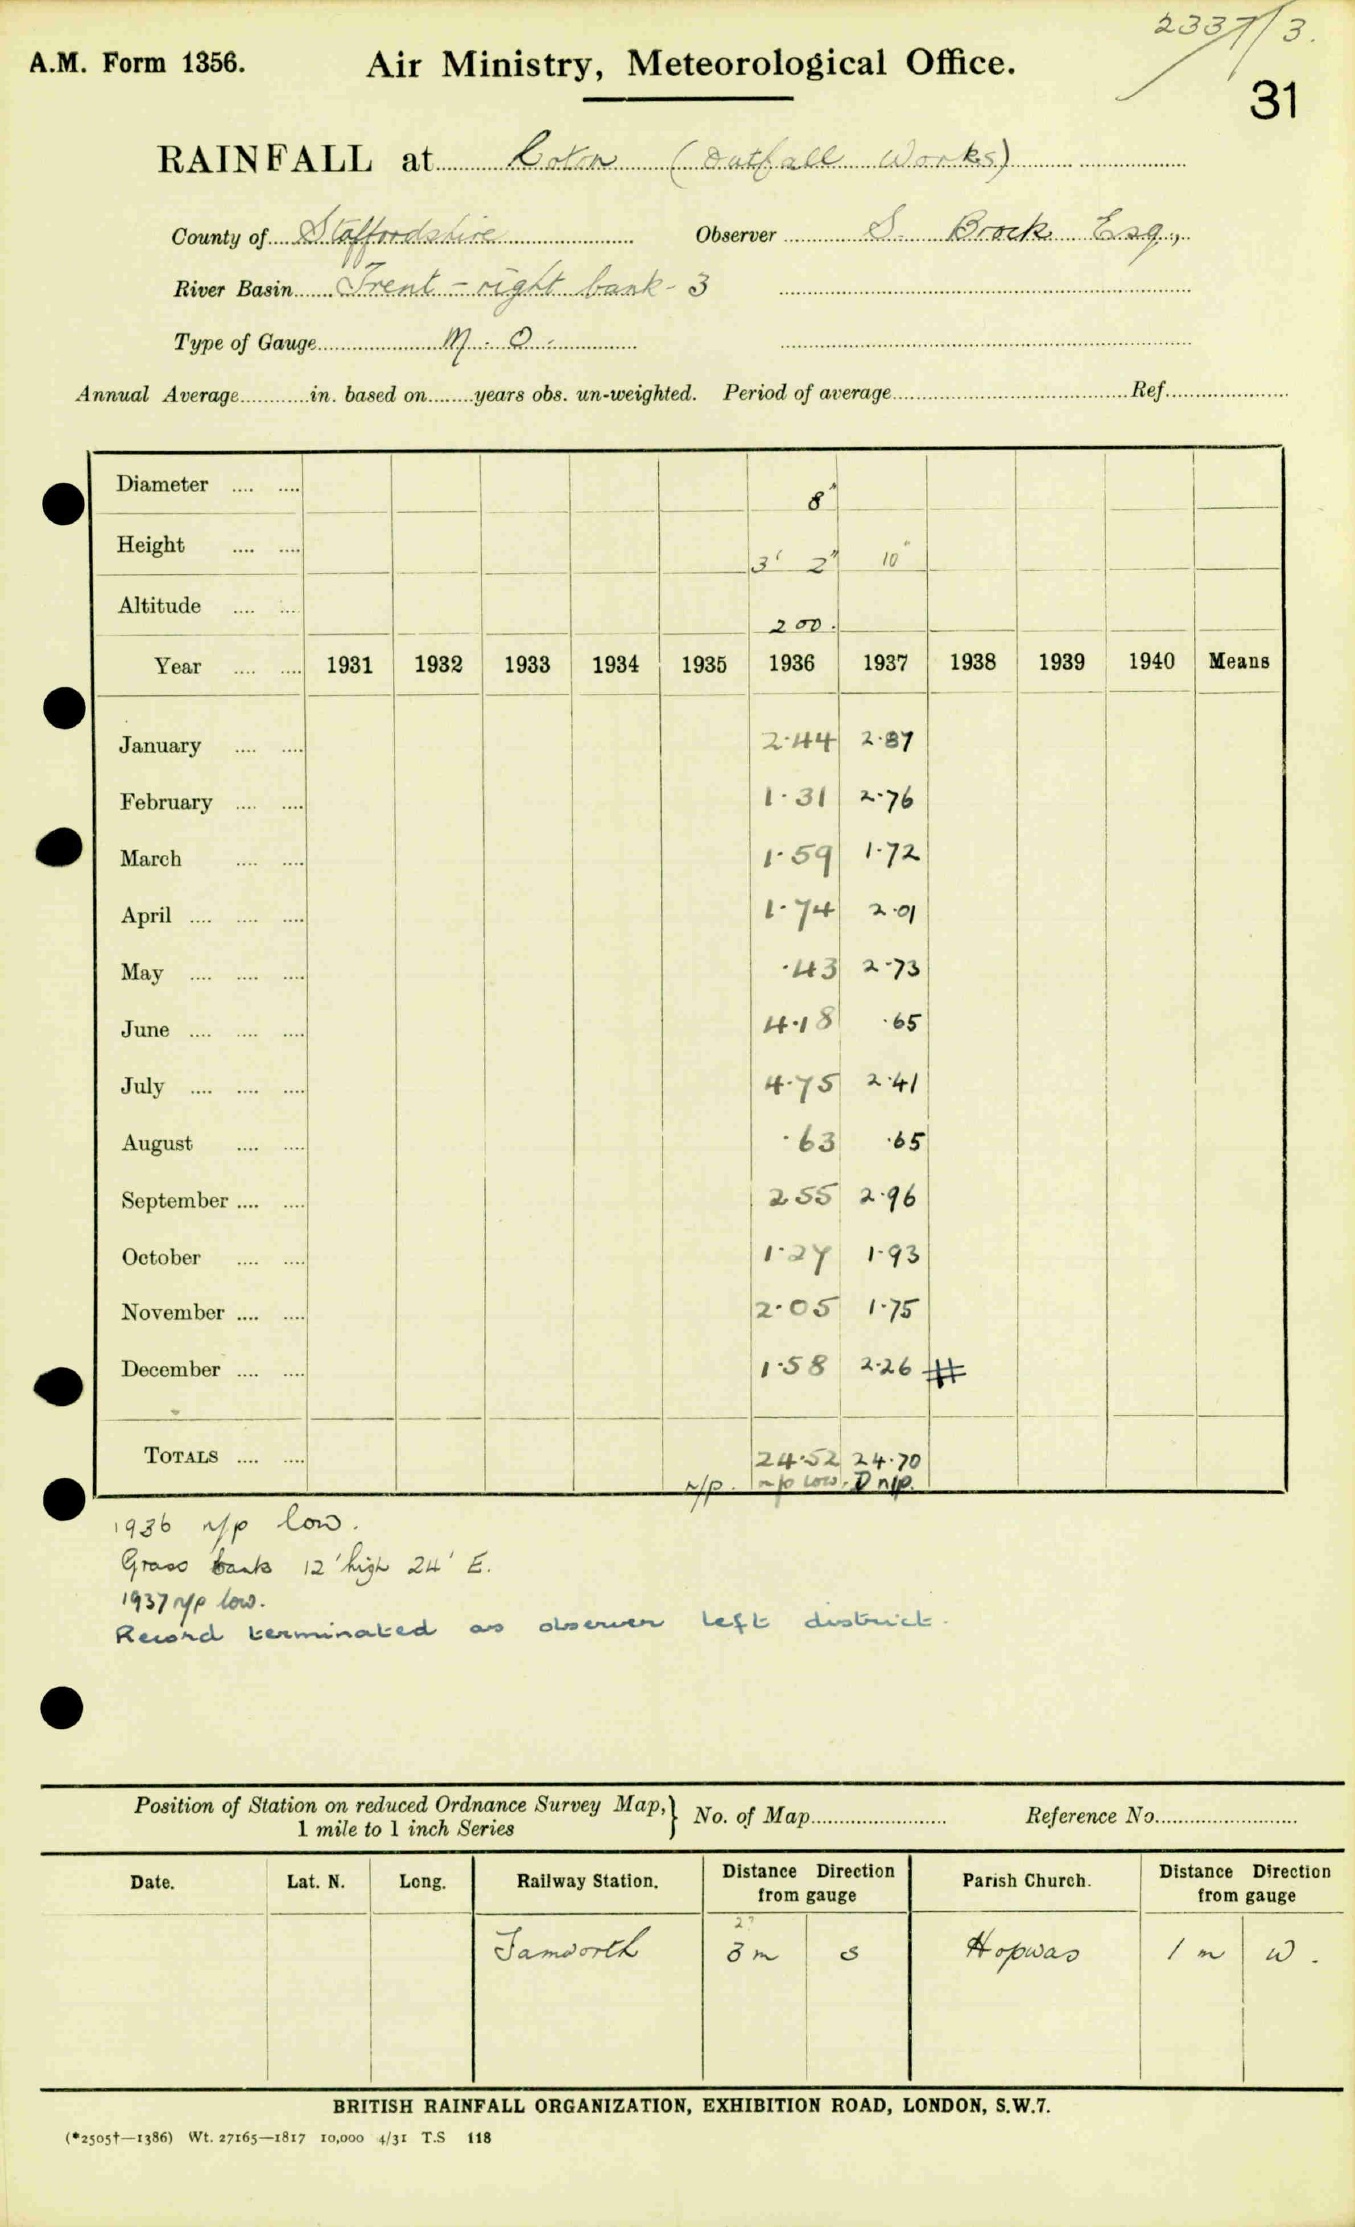 2337/3.
A.M. Form 1356. Air Ministry, Meteorological Office.
31
RAINFALL at Coton (Outfall Works)
County of Staffordshire Observer S. Brock Esq.,
River Basin Trent - right bank - 3
Type of Gauge M. O.
Annual Average............in. based on........years obs. un-weighted. Period of average........................ Ref.............
Diameter .... .... 8"
Height .... .... 3' 2" 10"
Altitude .... .... 200.
Year .... .... 1931 1932 1933 1934 1935 1936 1937 1938 1939 1940 Means
January .... .... 2.44 2.87
February .... .... 1.31 2.76
March .... .... 1.59 1.72
April .... .... .... 1.74 2.01
May .... .... .... .43 2.73
June .... .... .... 4.18 .65
July .... .... .... 4.75 2.41
August .... .... .63 .65
September .... .... 2 55 2.96
October .... .... 1.27 1.93
November .... .... 2.05 1.75
December .... .... 1.58 2.26 #
TOTALS .... .... 24.52 24.70
n/p. n/p low. D n/p.
1936 n/p low.
Grass bank 12' high 24' E.
1937 n/p low.
Record terminated as observer left district.
Position of Station on reduced Ordnance Survey Map, } No. of Map.................... Reference No....................
1 mile to 1 inch Series
Date. Lat. N. Long. Railway Station. Distance Direction from gauge Parish Church. Distance Direction from gauge
2?
Tamworth 3 m S Hopwas 1 m W.
BRITISH RAINFALL ORGANIZATION, EXHIBITION ROAD, LONDON, S.W.7.
(*2505†—1386) Wt. 27165—1817 10,000 4/31 T.S 118